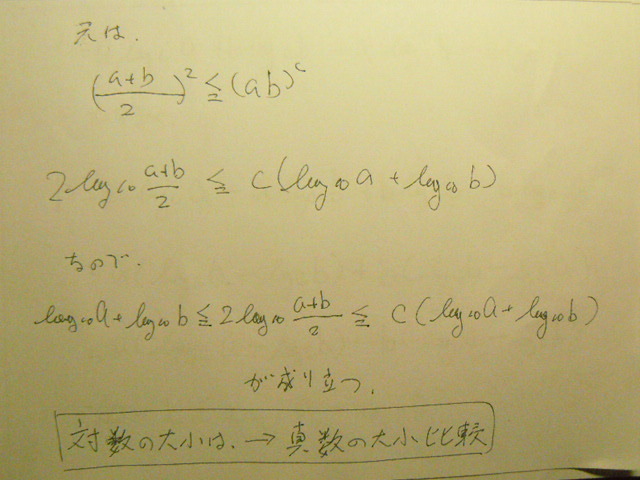 元は.
(a+b/2)² ≦ (ab)^c
2log₁₀ a+b/2 ≦ c(log₁₀a + log₁₀b)
なので.
log₁₀a + log₁₀b ≦ 2log₁₀ a+b/2 ≦ c(log₁₀a + log₁₀b)
が成り立つ.
対数の大小は. → 真数の大小比較